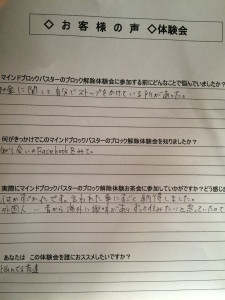 ◇ お 客 様 の 声 ◇体験会
マインドブロックバスターのブロック解除体験会に参加する前にどんなことで悩んでいましたか?
お金に関して自分でストップをかけている所があった。
何がきっかけでこのマインドブロックバスターのブロック解除体験会を知りましたか?
知り合いのFacebookをみて。
実際にマインドブロックバスターのブロック解除体験お茶会に参加していかがですか?どう感じ
言われた事にすごく納得しました。
外国人 昔から海外に興味がありずっと住みたいと思っていたので
あなたは この体験会を誰におススメしたいですか?
悩んでる友達